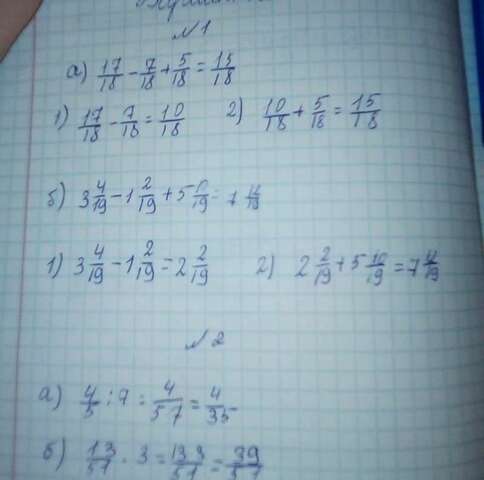 № 1
а) 17/18 - 7/18 + 5/18 = 15/18
1) 17/18 - 7/18 = 10/18 2) 10/18 + 5/18 = 15/18
б) 3 4/19 - 1 2/19 + 5 10/19 = 7 12/19
1) 3 4/19 - 1 2/19 = 2 2/19 2) 2 2/19 + 5 10/19 = 7 12/19
№ 2
а) 4/5 : 7 = 4/5·7 = 4/35
б) 13/51 · 3 = 13·3/51 = 39/51